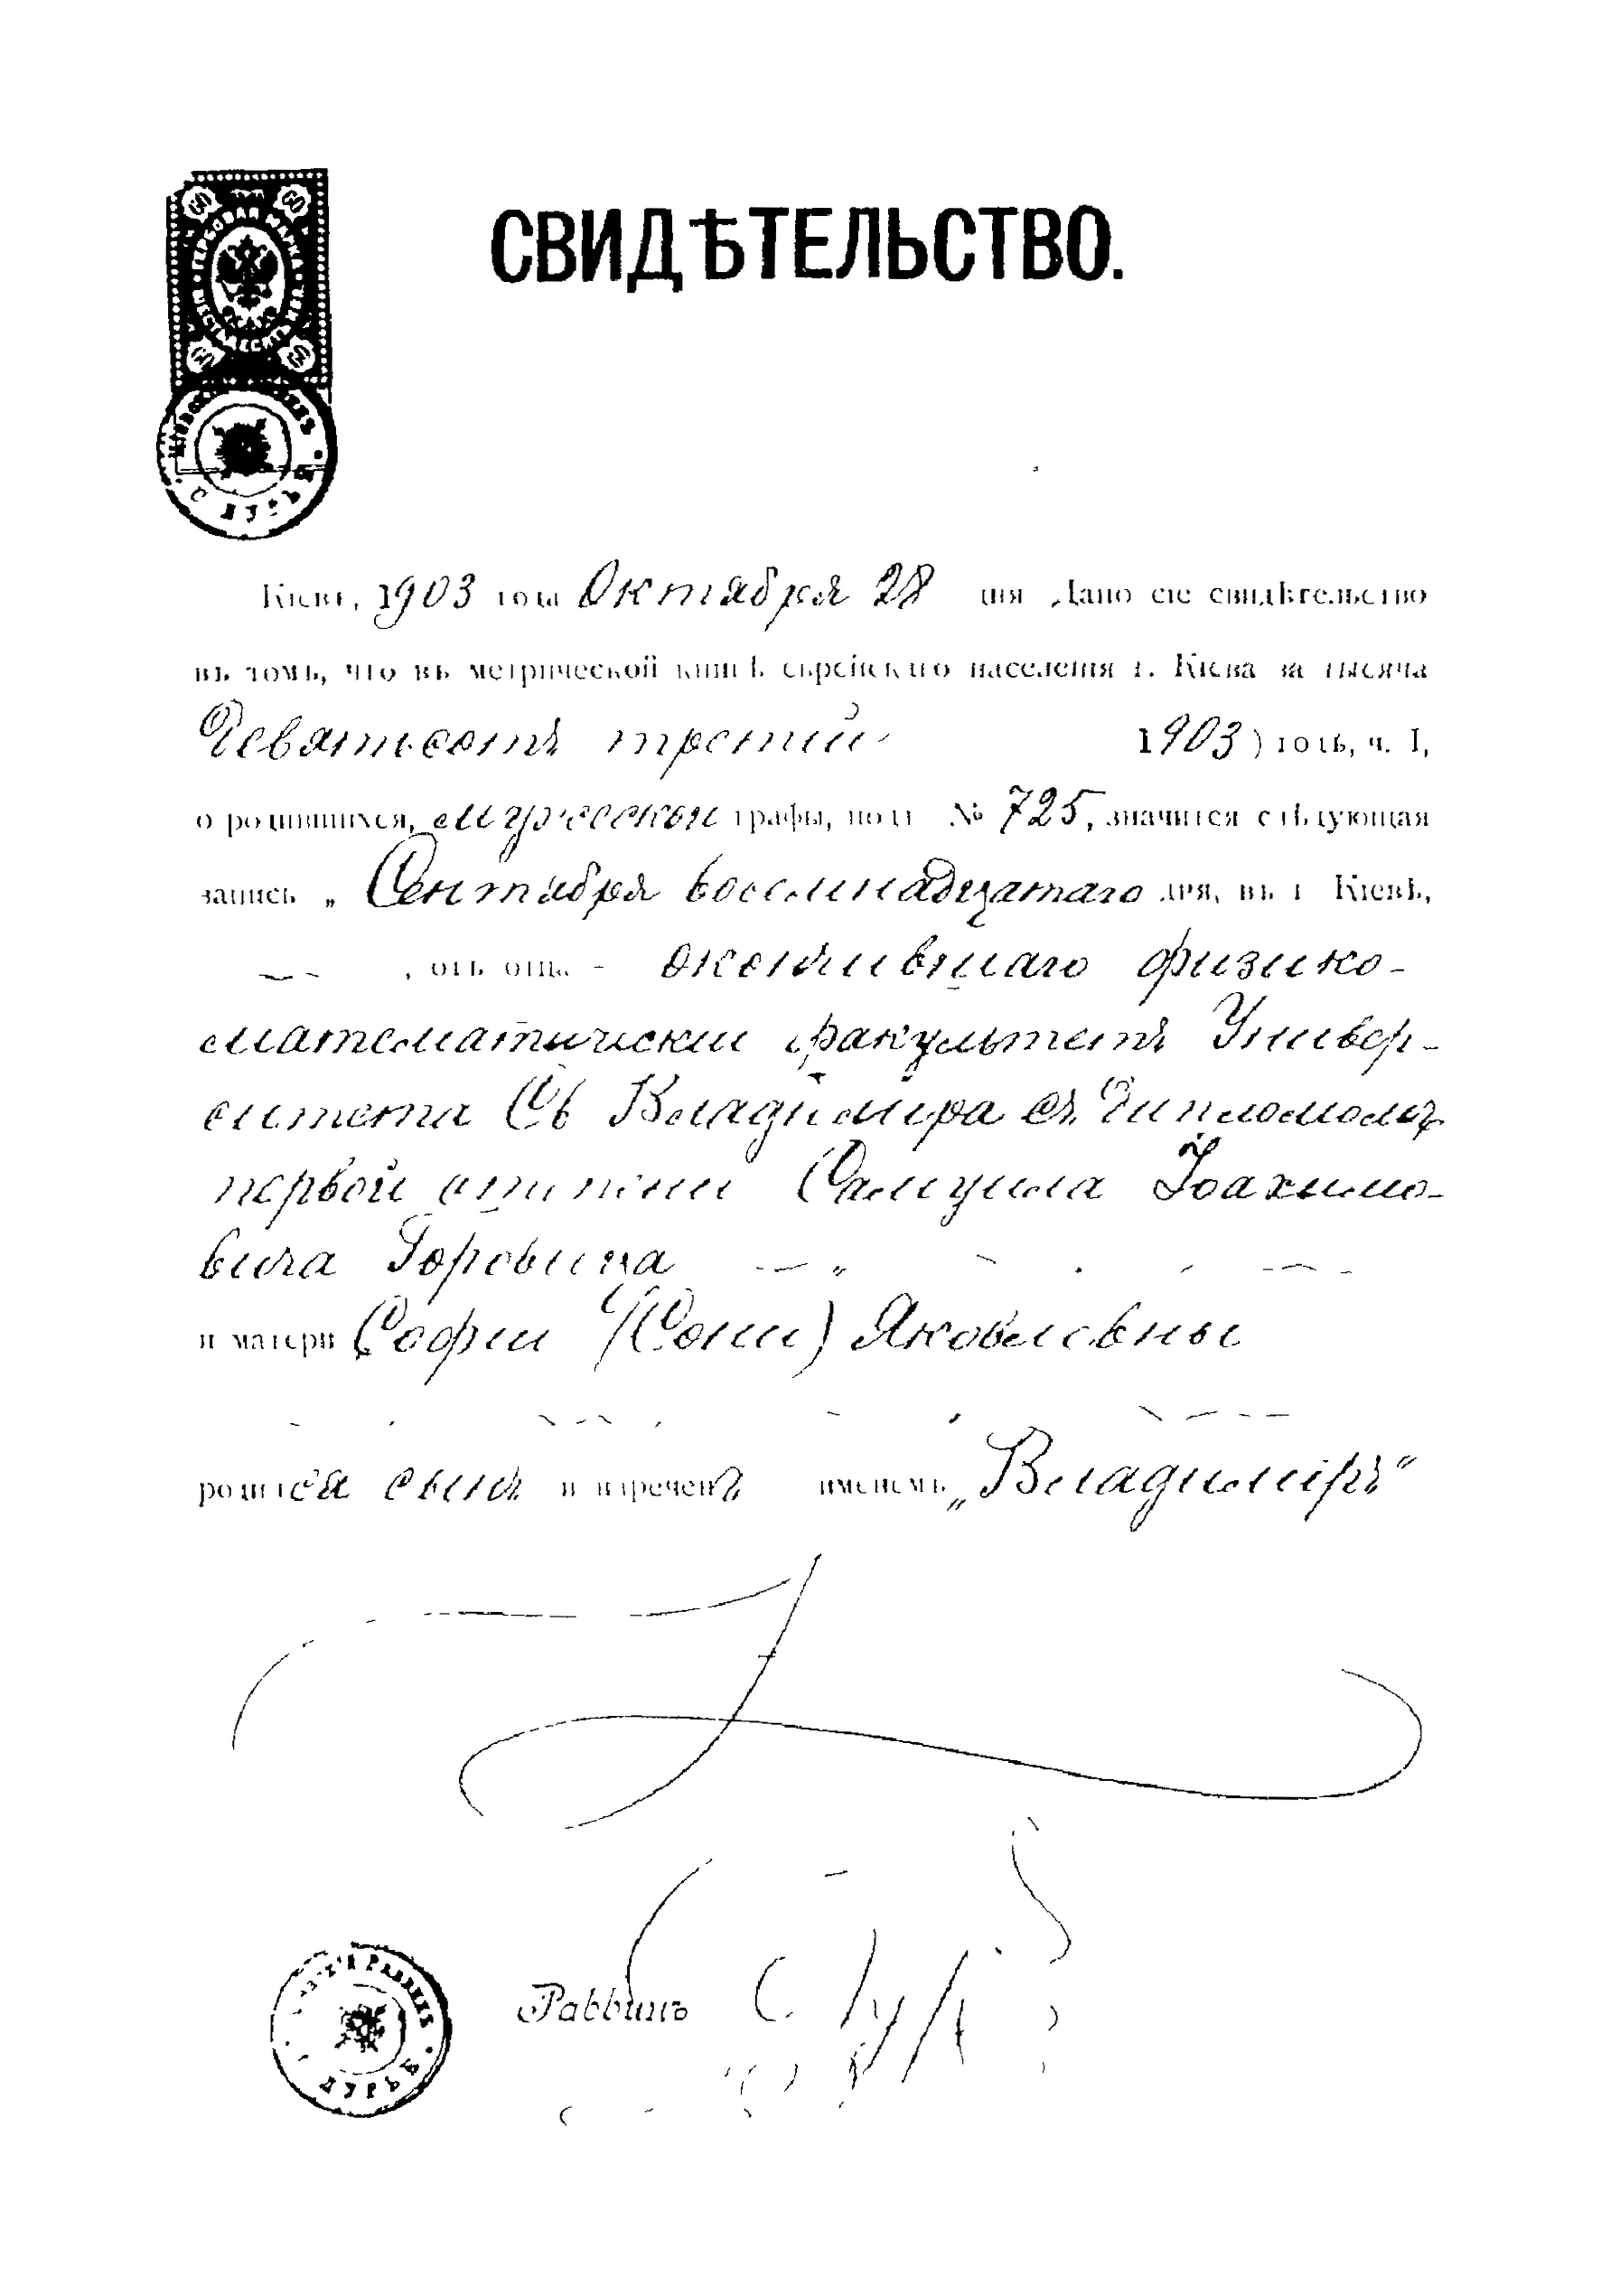 60 60
ГЕРБОВАЯ МАРКА
ШЕСТЬДЕСЯТЪ
60 60
СВИДѢТЕЛЬСТВО.
Кіевъ, 1903 года Октября 28 дня Дано сіе свидѣтельство
въ томъ, что въ метрической книгѣ еврейскаго населенія г. Кіева за тысяча
девятьсотъ третій 1903) годъ, ч. I,
о родившихся, мужеской графы, подъ № 725, значится слѣдующая
запись „ Сентября восемнадцатаго дня, въ г Кіевѣ,
, отъ отца - окончившаго физико-
математическій факультетъ Универ-
ситета Св Владиміра съ дипломомъ
первой степени Самуила Іоахимо-
вича Горовица
и матери Софіи (Сони) Яковлевны
родился сынъ и нареченъ именемъ „Владиміръ“
РАВВИНЪ
Раввинъ